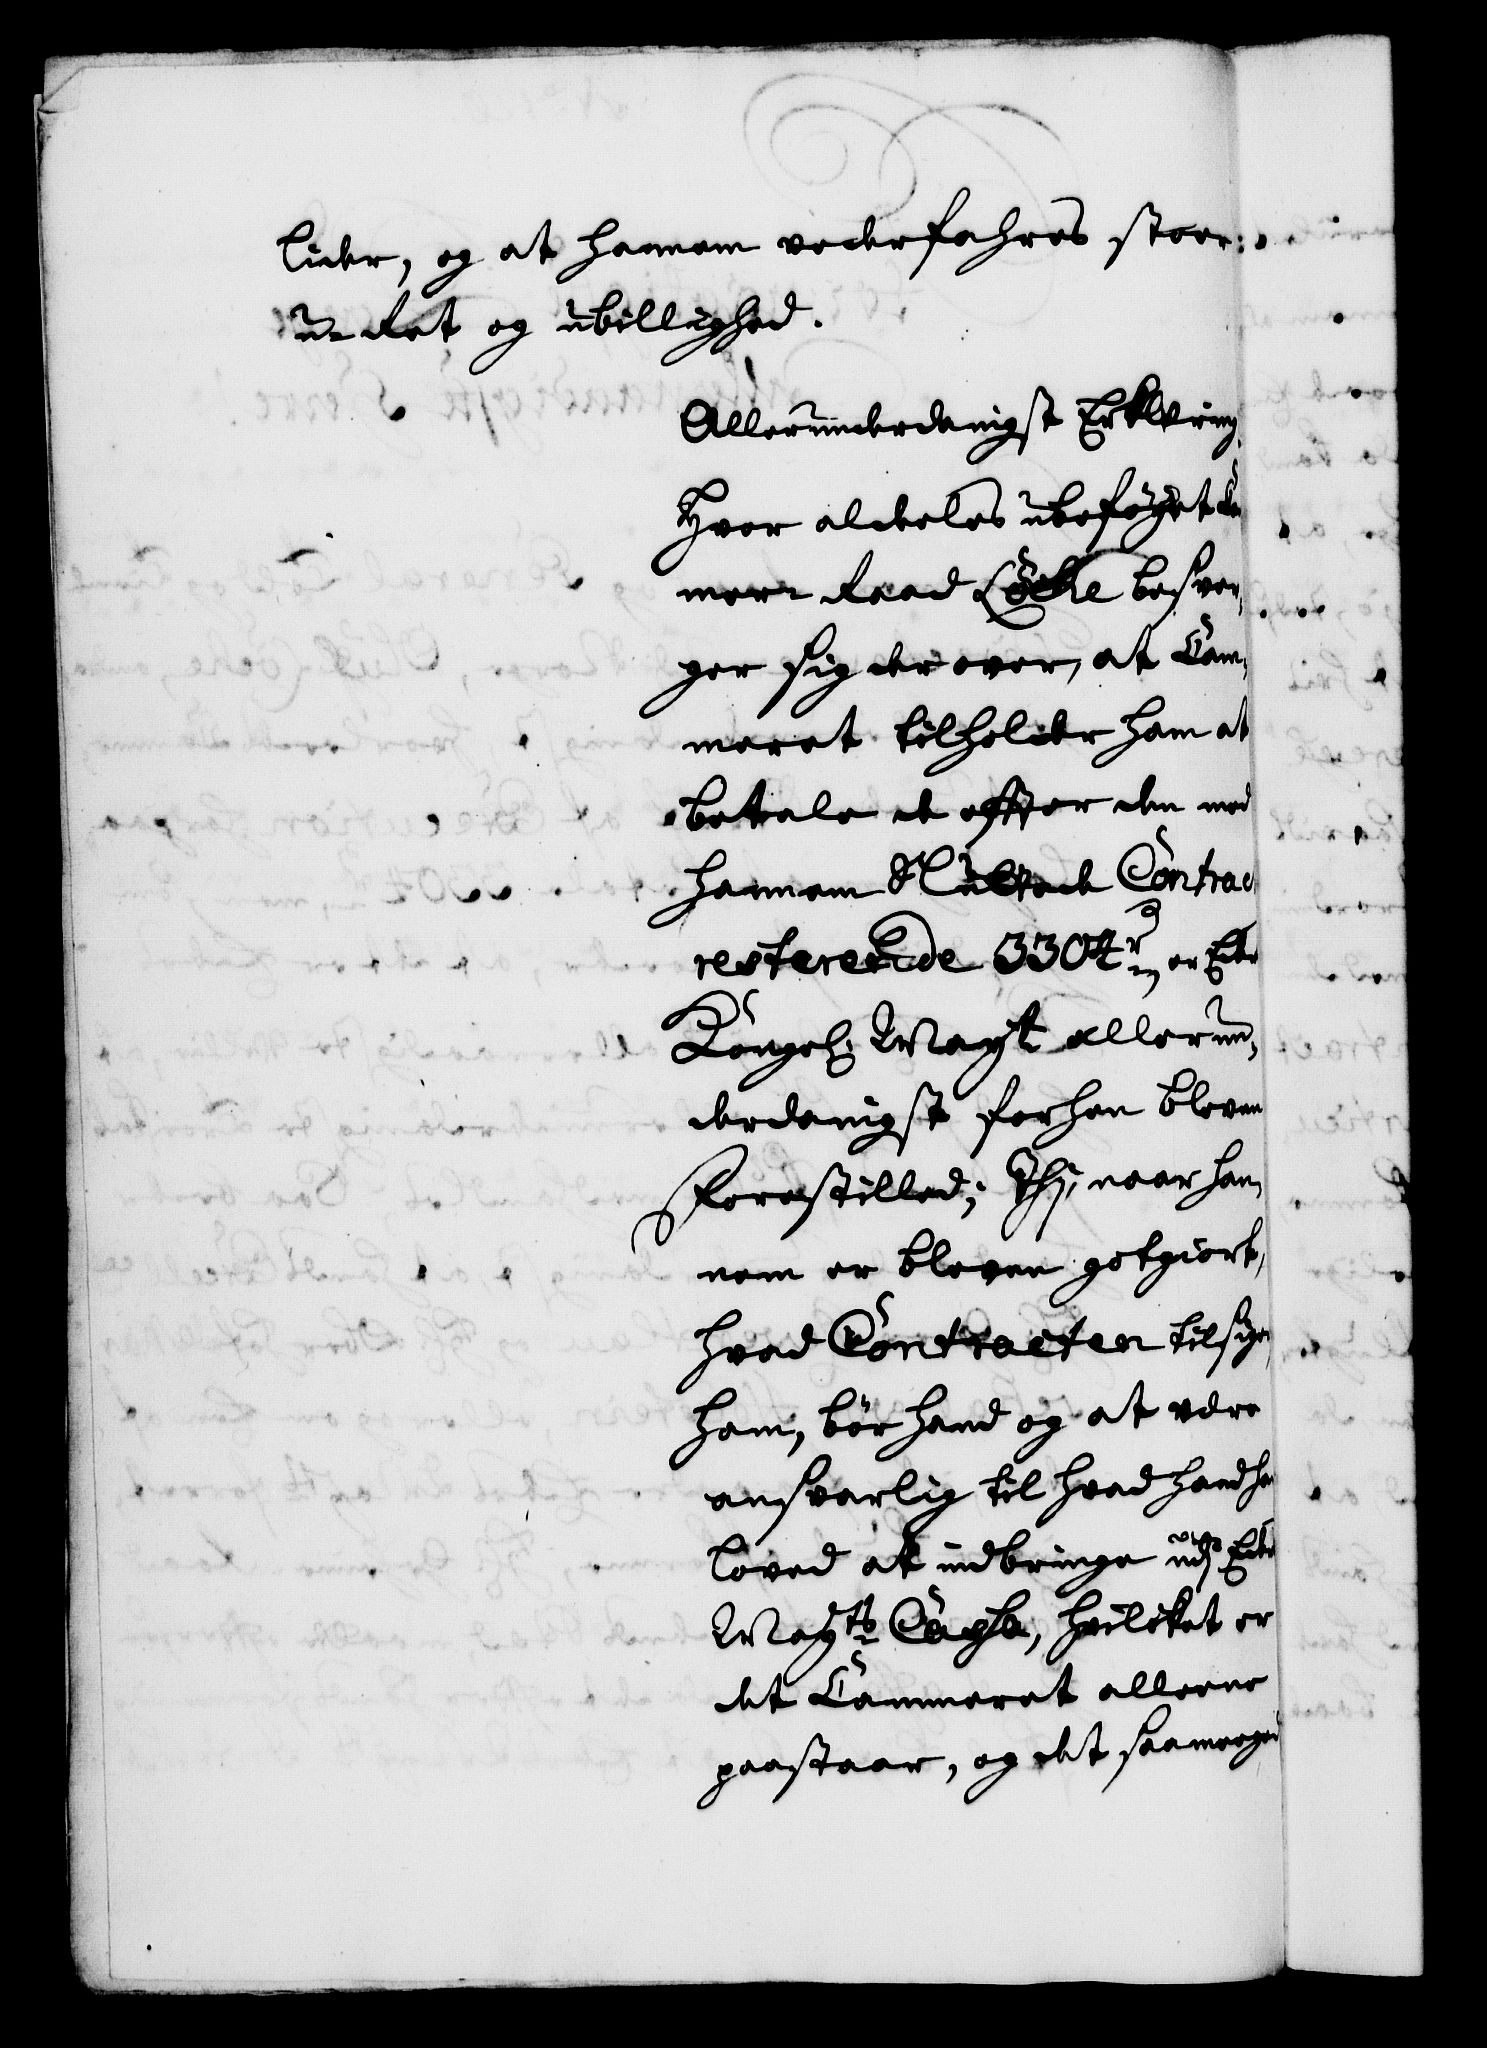 lider, og at hannem vederfahres stoer
u-Ret og ubillighed.
Allerunderdanigst Erklæring.
Hvor aldeles ubeføyet Ca
mer-Raad Löcke besver,
ger sig derover, at Cam,
meret tilholder ham at
betale de effter den med
hannem sluttede Contrac
resterende 3304 er Eders
Kongel: Mayt allerun,
derdanigst forhen bleven
Forestilled; Thj, naar han
nem er bleven gotgiort,
hvad Contracten tilsiger
ham, bör hand og at være
ansvarlig til hvad hand ha
loved at indbringe udj Eders
Mayts Cassa, hvilcket er
det Cammeret alleene
paastaar, og det saameeged